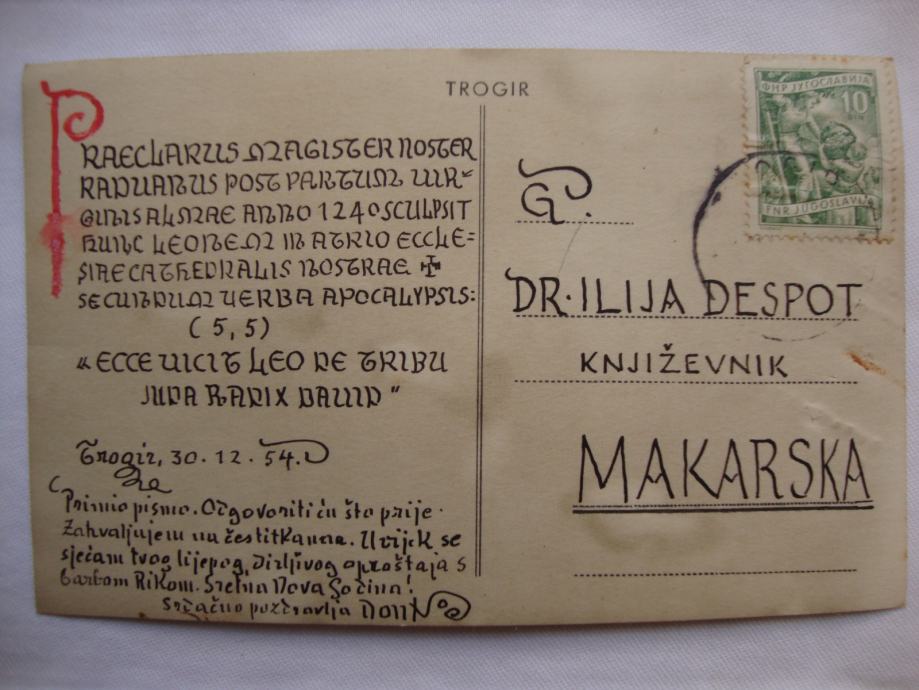 TROGIR
PRAECLARUS MAGISTER NOSTER
RADUANUS POST PARTUM UIR-
GINIS ALMAE ANNO 1240 SCULPSIT
HUNC LEONEM IN ATRIO ECCLE=
SIAE CATHEDRALIS NOSTRAE ✠
SECUNDUM UERBA APOCALYPSIS:
(5,5)
„ECCE UICIT LEO DE TRIBU
JUDA RADIX DAUID"
Trogir, 30.12.54.
Primio pismo. Odgovoriti ću što prije.
Zahvaljujem na čestitkama. Uvijek se
sjećam tvog lijepog, dirljivog oproštaja s
barbom Rikom. Sretna Nova Godina!
Srdačno pozdravlja
ФНР ЈУГОСЛАВИЈА
10
DIN
FNR JUGOSLAVIJA
G.
DR. ILIJA DESPOT
KNJIŽEVNIK
MAKARSKA